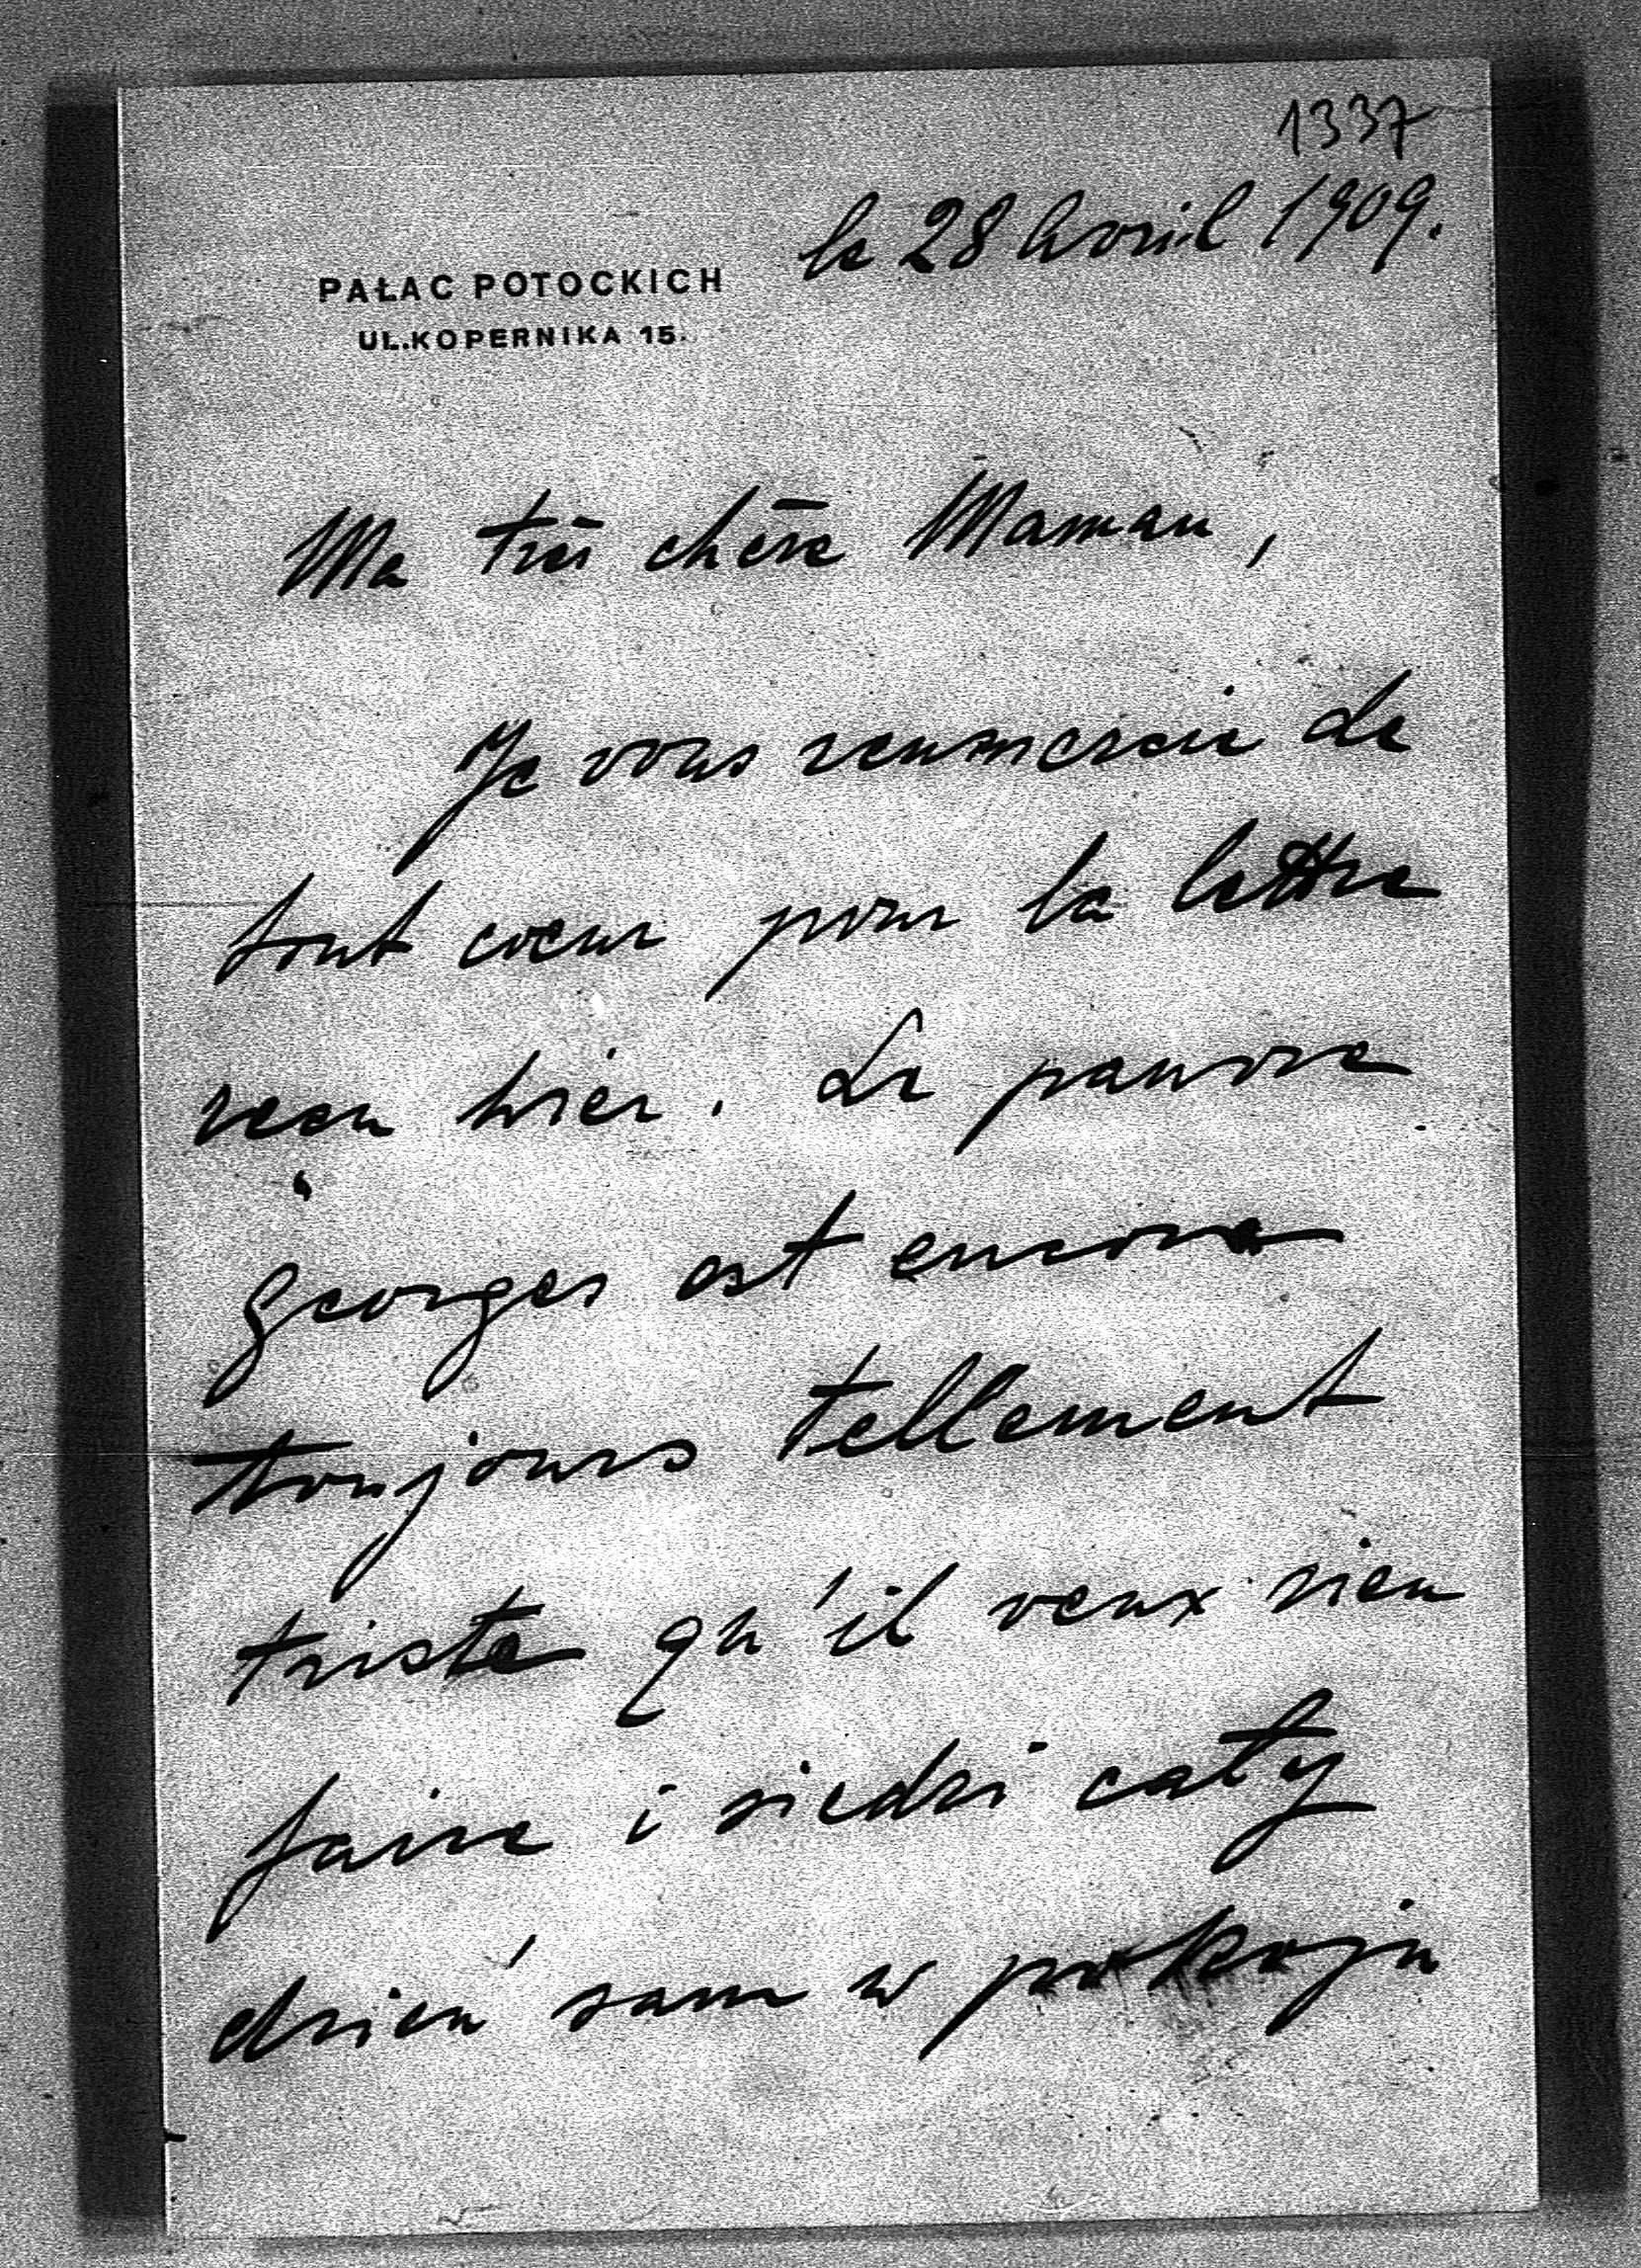 1337
le 28 Avril 1909.
PAŁAC POTOCKICH
UL.KOPERNIKA 15.
Ma très chère Maman,
Je vous remmercie de
tout coeur pour la lettre
recu hier. Le pauvre
Georges est encore
toujours tellement
triste qu'il veux rien
faire i siedzi cały
dzień sam w pokoju